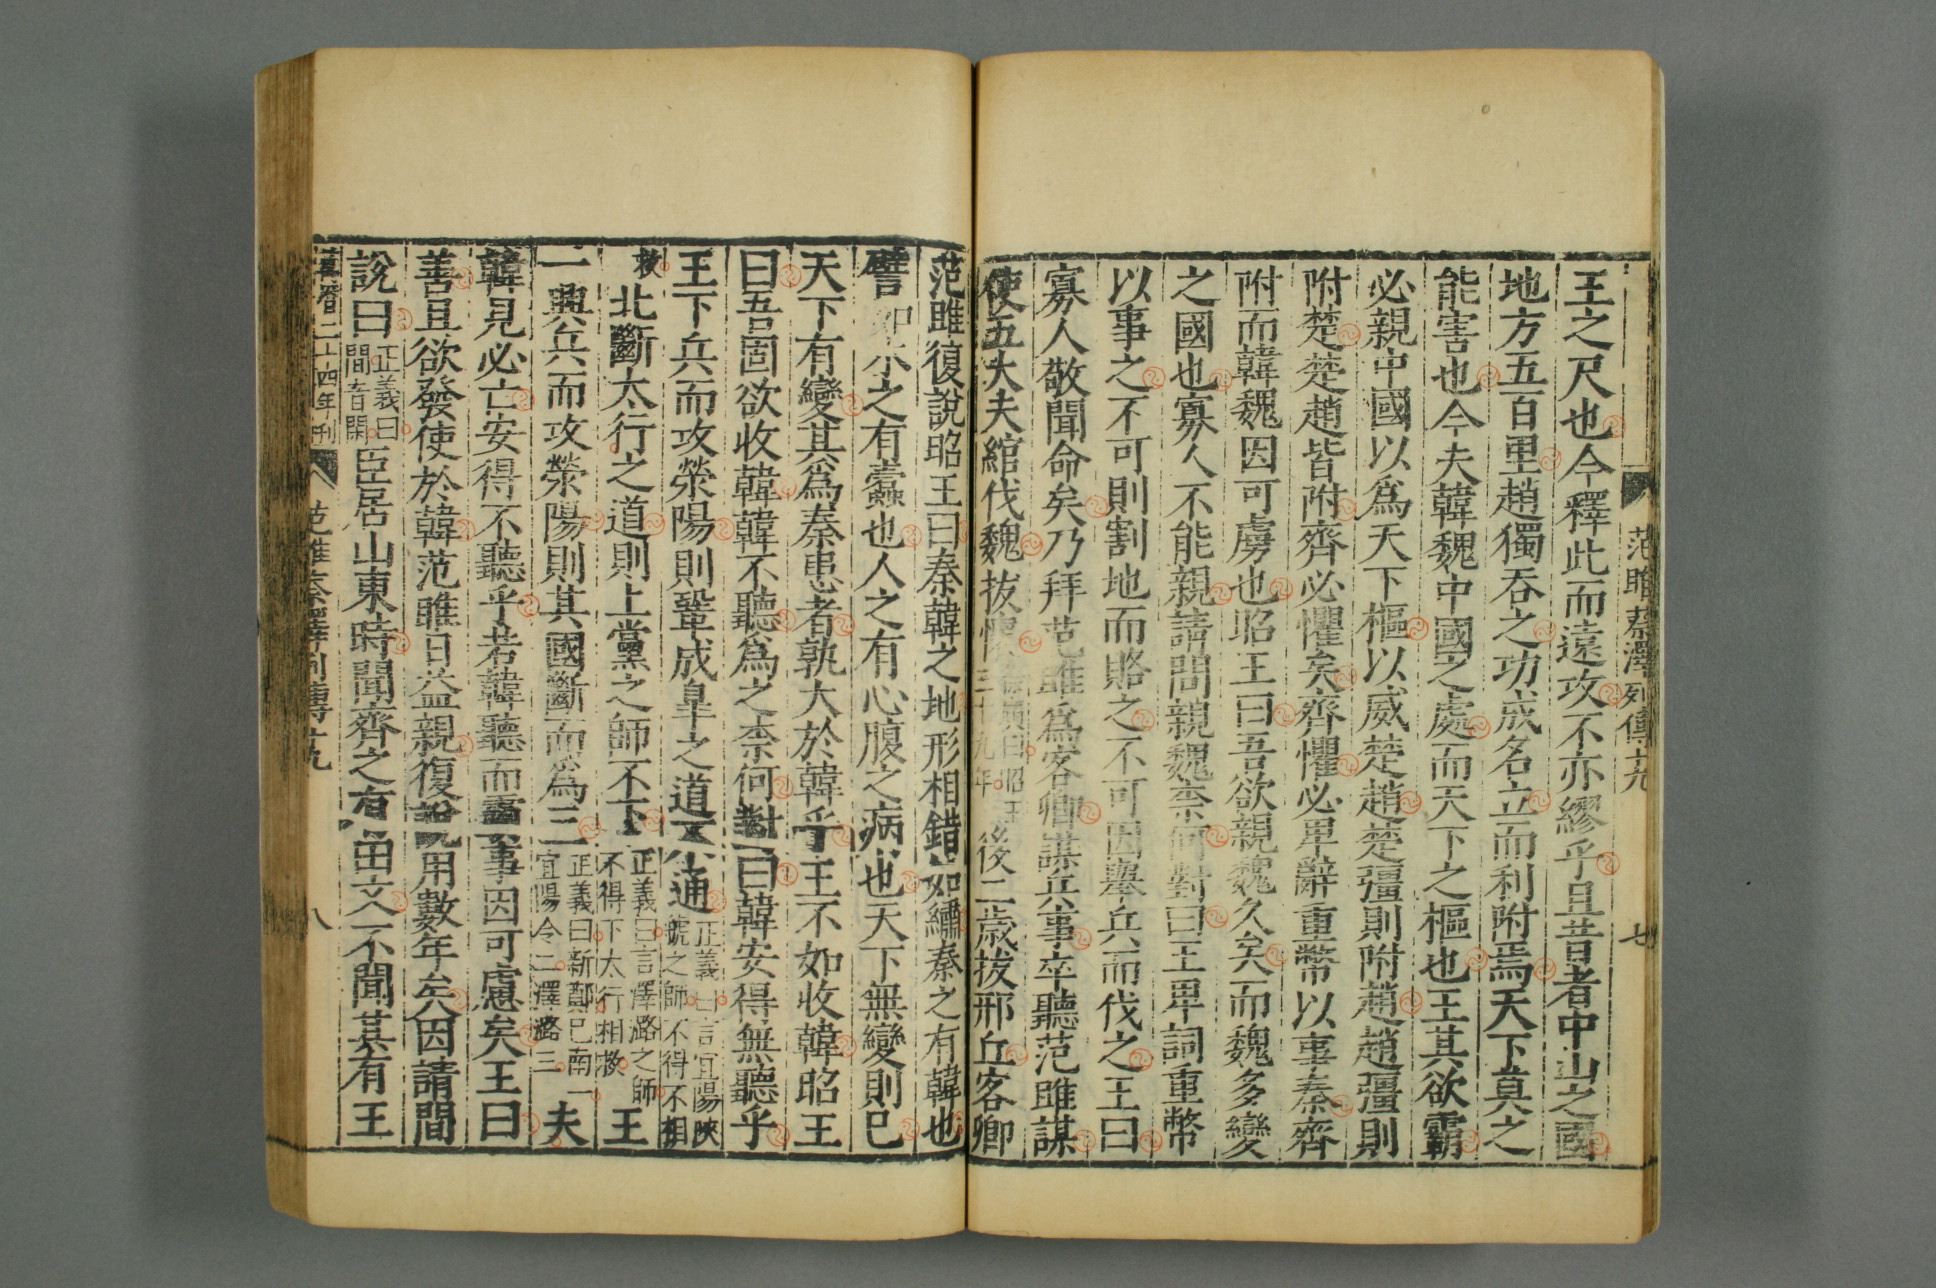 范雎蔡澤列傳十九
七
王之尺也今釋此而遠攻不亦繆乎且昔者中山之國
地方五百里趙獨吞之功成名立而利附焉天下莫之
能害也今夫韓魏中國之處而天下之樞也王其欲霸
必親中國以爲天下樞以威楚趙楚彊則附趙趙彊則
附楚楚趙皆附齊必懼矣齊懼必卑辭重幣以事秦齊
附而韓魏因可虜也昭王曰吾欲親魏久矣而魏多變
之國也寡人不能親請問親魏柰何對曰王卑詞重幣
以事之不可則割地而賂之不可因舉兵而伐之王曰
寡人敬聞命矣乃拜范雎爲客卿謀兵事卒聽范雎謀
使五大夫綰伐魏拔懷 曰昭王三十九年 後二歲拔邢丘客卿
范雎復說昭王曰秦韓之地形相錯如繡秦之有韓也
譬如木之有蠹也人之有心腹之病也天下無變則已
天下有變其爲秦患者孰大於韓乎王不如收韓昭王
曰吾固欲收韓韓不聽爲之柰何對曰韓安得無聽乎
王下兵而攻滎陽則鞏成皐之道不通 正義曰言宜陽陜虢之師不得不相
救 北斷太行之道則上黨之師不下 正義曰言澤潞之師不得下太行相救 王
一興兵而攻滎陽則其國斷而爲三 正義曰新鄭已南一宜陽令二澤潞三 夫
韓見必亡安得不聽乎若韓聽而霸事因可慮矣王曰
善且欲發使於韓范雎日益親復說用數年矣因請間
說曰 正義曰間音閑 臣居山東時聞齊之有田文不聞其有王
萬曆二十四年刊
范雎蔡澤列傳十九
八